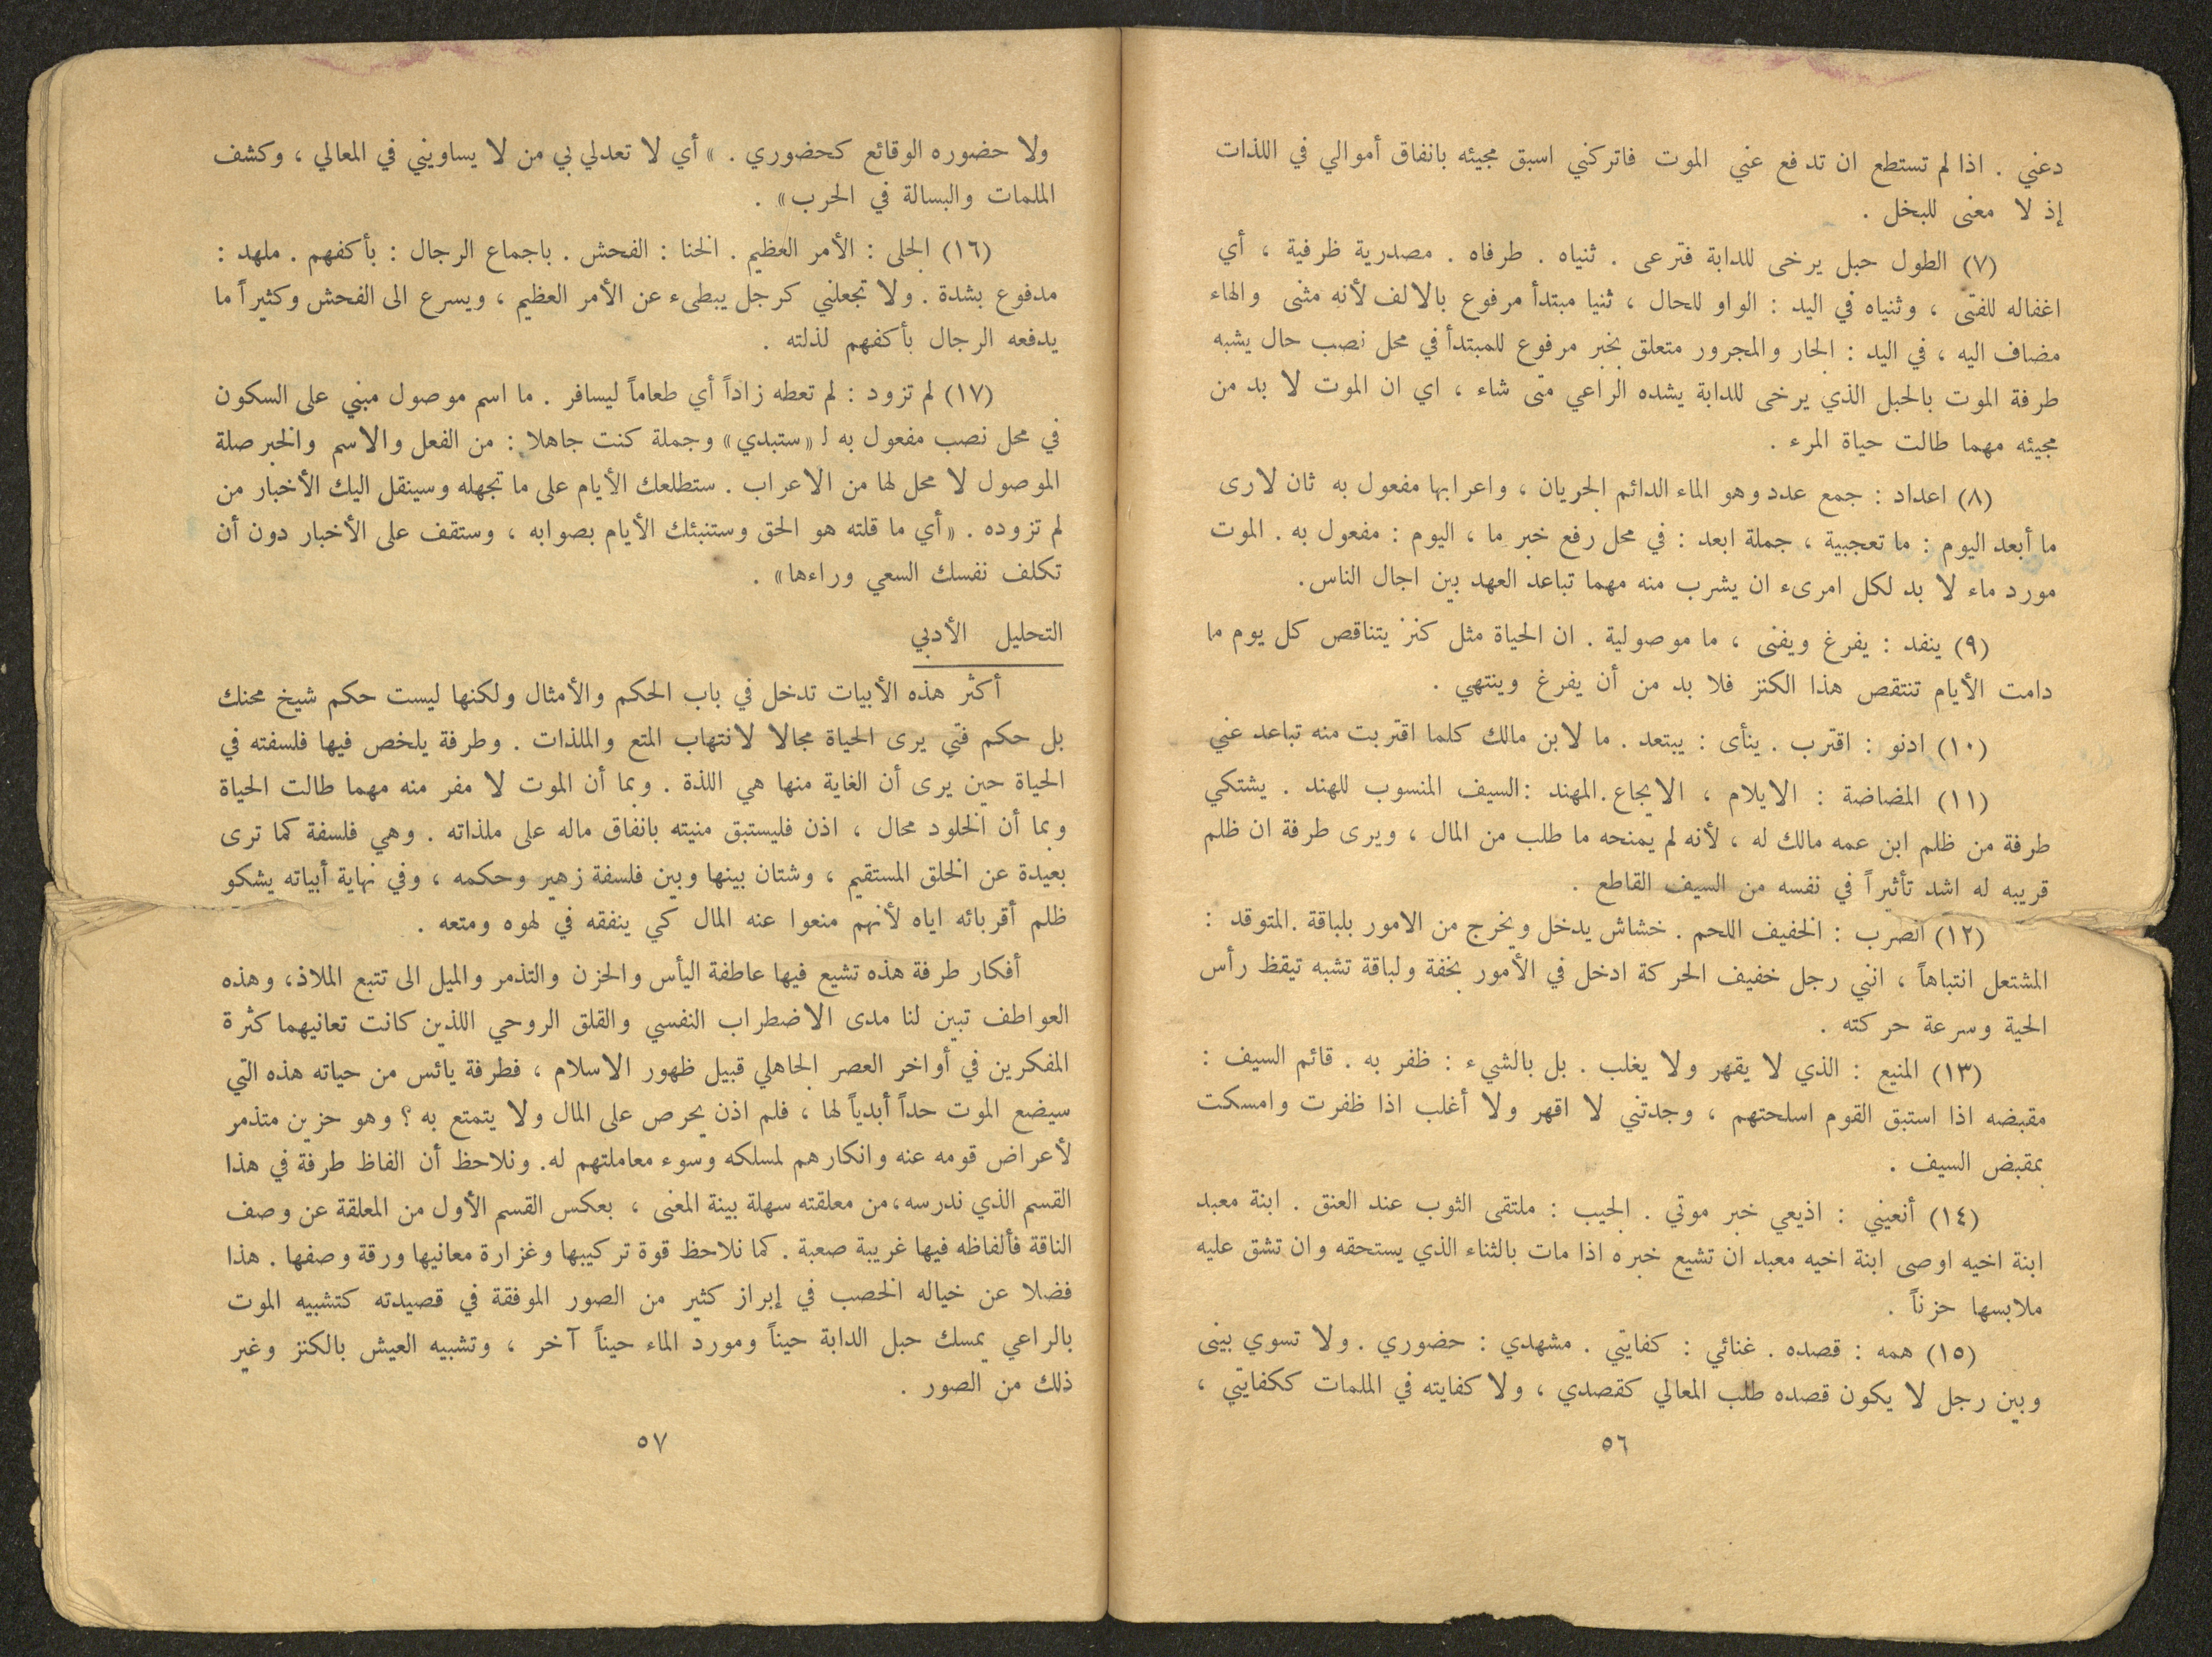 دعني . اذا لم تستطع ان تدفع عني الموت فاتركني اسبق مجيئه بانفاق أموالي في اللذات
إذ لا معنى للبخل .
(٧) الطول حبل يرخى للدابة فترعى . ثنياه . طرفاه . مصدرية ظرفية ، أي
اغفاله للفتى ، وثنياه في اليد : الواو للحال ، ثنيا مبتدأ مرفوع بالالف لأنه مثنى والهاء
مضاف اليه ، في اليد : الجار والمجرور متعلق بخبر مرفوع للمبتدأ في محل نصب حال يشبه
طرفة الموت بالحبل الذي يرخى للدابة يشده الراعي متى شاء ، اي ان الموت لا بد من
مجيئه مهما طالت حياة المرء .
(٨) اعداد : جمع عدد وهو الماء الدائم الجريان ، واعرابها مفعول به ثان لارى
ما أبعد اليوم : ما تعجبية ، جملة ابعد : في محل رفع خبر ما ، اليوم : مفعول به . الموت
مورد ماء لا بد لكل امرىء ان يشرب منه مهما تباعد العهد بين اجال الناس .
(٩) ينفد : يفرغ ويفنى ، ما موصولية . ان الحياة مثل كنز يتناقص كل يوم ما
دامت الأيام تنتقص هذا الكنز فلا بد من أن يفرغ وينتهي .
(١٠) ادنو : اقترب . ينأى : يبتعد . ما لابن مالك كلما اقتربت منه تباعد عني
(١١) المضاضة : الايلام ، الايجاع . المهند : السيف المنسوب للهند . يشتكي
طرفة من ظلم ابن عمه مالك له ، لأنه لم يمنحه ما طلب من المال ، ويرى طرفة ان ظلم
قريبه له اشد تأثيراً في نفسه من السيف القاطع .
(١٢) الضرب : الخفيف اللحم . خشاش يدخل ويخرج من الامور بلباقة . المتوقد :
المشتعل انتباهاً ، انني رجل خفيف الحركة ادخل في الأمور بخفة ولباقة تشبه تيقظ رأس
الحية وسرعة حركته .
(١٣) المنيع : الذي لا يقهر ولا يغلب . بل بالشيء : ظفر به . قائم السيف :
مقبضه اذا استبق القوم اسلحتهم ، وجدتني لا اقهر ولا أغلب اذا ظفرت وامسكت
بمقبض السيف .
(١٤) أنعيني : اذيعي خبر موتي . الجيب : ملتقى الثوب عند العنق . ابنة معبد
ابنة اخيه اوصى ابنة اخيه معبد ان تشيع خبره اذا مات بالثناء الذي يستحقه وان تشق عليه
ملابسها حزناً .
(١٥) همه : قصده . غنائي : كفايتي . مشهدي : حضوري . ولا تسوي بينى
وبين رجل لا يكون قصده طلب المعالي كقصدي ، ولا كفايته في الملمات ككفايتي ،
٥٦
ولا حضوره الوقائع كحضوري . » أي لا تعدلي بي من لا يساويني في المعالي ، وكشف
الملمات والبسالة في الحرب » .
(١٦) الجلى : الأمر العظيم . الخنا : الفحش . باجماع الرجال : بأكفهم . ملهد :
مدفوع بشدة . ولا تجعلني كرجل يبطىء عن الأمر العظيم ، ويسرع الى الفحش وكثيراً ما
يدفعه الرجال بأكفهم لذلته .
(١٧) لم تزود : لم تعطه زاداً أي طعاماً ليسافر . ما اسم موصول مبني على السكون
في محل نصب مفعول به لـ «ستبدي» وجملة كنت جاهلا : من الفعل والاسم والخبر صلة
الموصول لا محل لها من الاعراب . ستطلعك الأيام على ما تجهله وسينقل اليك الأخبار من
لم تزوده . « أي ما قلته هو الحق وستنبئك الأيام بصوابه ، وستقف على الأخبار دون أن
تكلف نفسك السعي وراءها » .
التحليل الأدبي
أكثر هذه الأبيات تدخل في باب الحكم والأمثال ولكنها ليست حكم شيخ محنك
بل حكم فتي يرى الحياة مجالا لانتهاب المتع والملذات . وطرفة يلخص فيها فلسفته في
الحياة حين يرى أن الغاية منها هي اللذة . وبما أن الموت لا مفر منه مهما طالت الحياة
وبما أن الخلود محال ، اذن فليستبق منيته بانفاق ماله على ملذاته . وهي فلسفة كما ترى
بعيدة عن الخلق المستقيم ، وشتان بينها وبين فلسفة زهير وحكمه ، وفي نهاية أبياته يشكو
ظلم أقربائه اياه لأنهم منعوا عنه المال كي ينفقه في لهوه ومتعه .
أفكار طرفة هذه تشيع فيها عاطفة اليأس والحزن والتذمر والميل الى تتبع الملاذ ، وهذه
العواطف تبين لنا مدى الاضطراب النفسي والقلق الروحي اللذين كانت تعانيهما كثرة
المفكرين في أواخر العصر الجاهلي قبيل ظهور الاسلام ، فطرفة يائس من حياته هذه التي
سيضع الموت حداً أبدياً لها ، فلم اذن يحرص على المال ولا يتمتع به ؟ وهو حزين متذمر
لأعراض قومه عنه وانكارهم لمسلكه وسوء معاملتهم له . ونلاحظ أن الفاظ طرفة في هذا
القسم الذي ندرسه ، من معلقته سهلة بينة المعنى ، بعكس القسم الأول من المعلقة عن وصف
الناقة فألفاظه فيها غريبة صعبة . كما نلاحظ قوة تركيبها وغزارة معانيها ورقة وصفها . هذا
فضلا عن خياله الخصب في إبراز كثير من الصور الموفقة في قصيدته كتشبيه الموت
بالراعي يمسك حبل الدابة حيناً ومورد الماء حيناً آخر ، وتشبيه العيش بالكنز وغير
ذلك من الصور .
٥٧